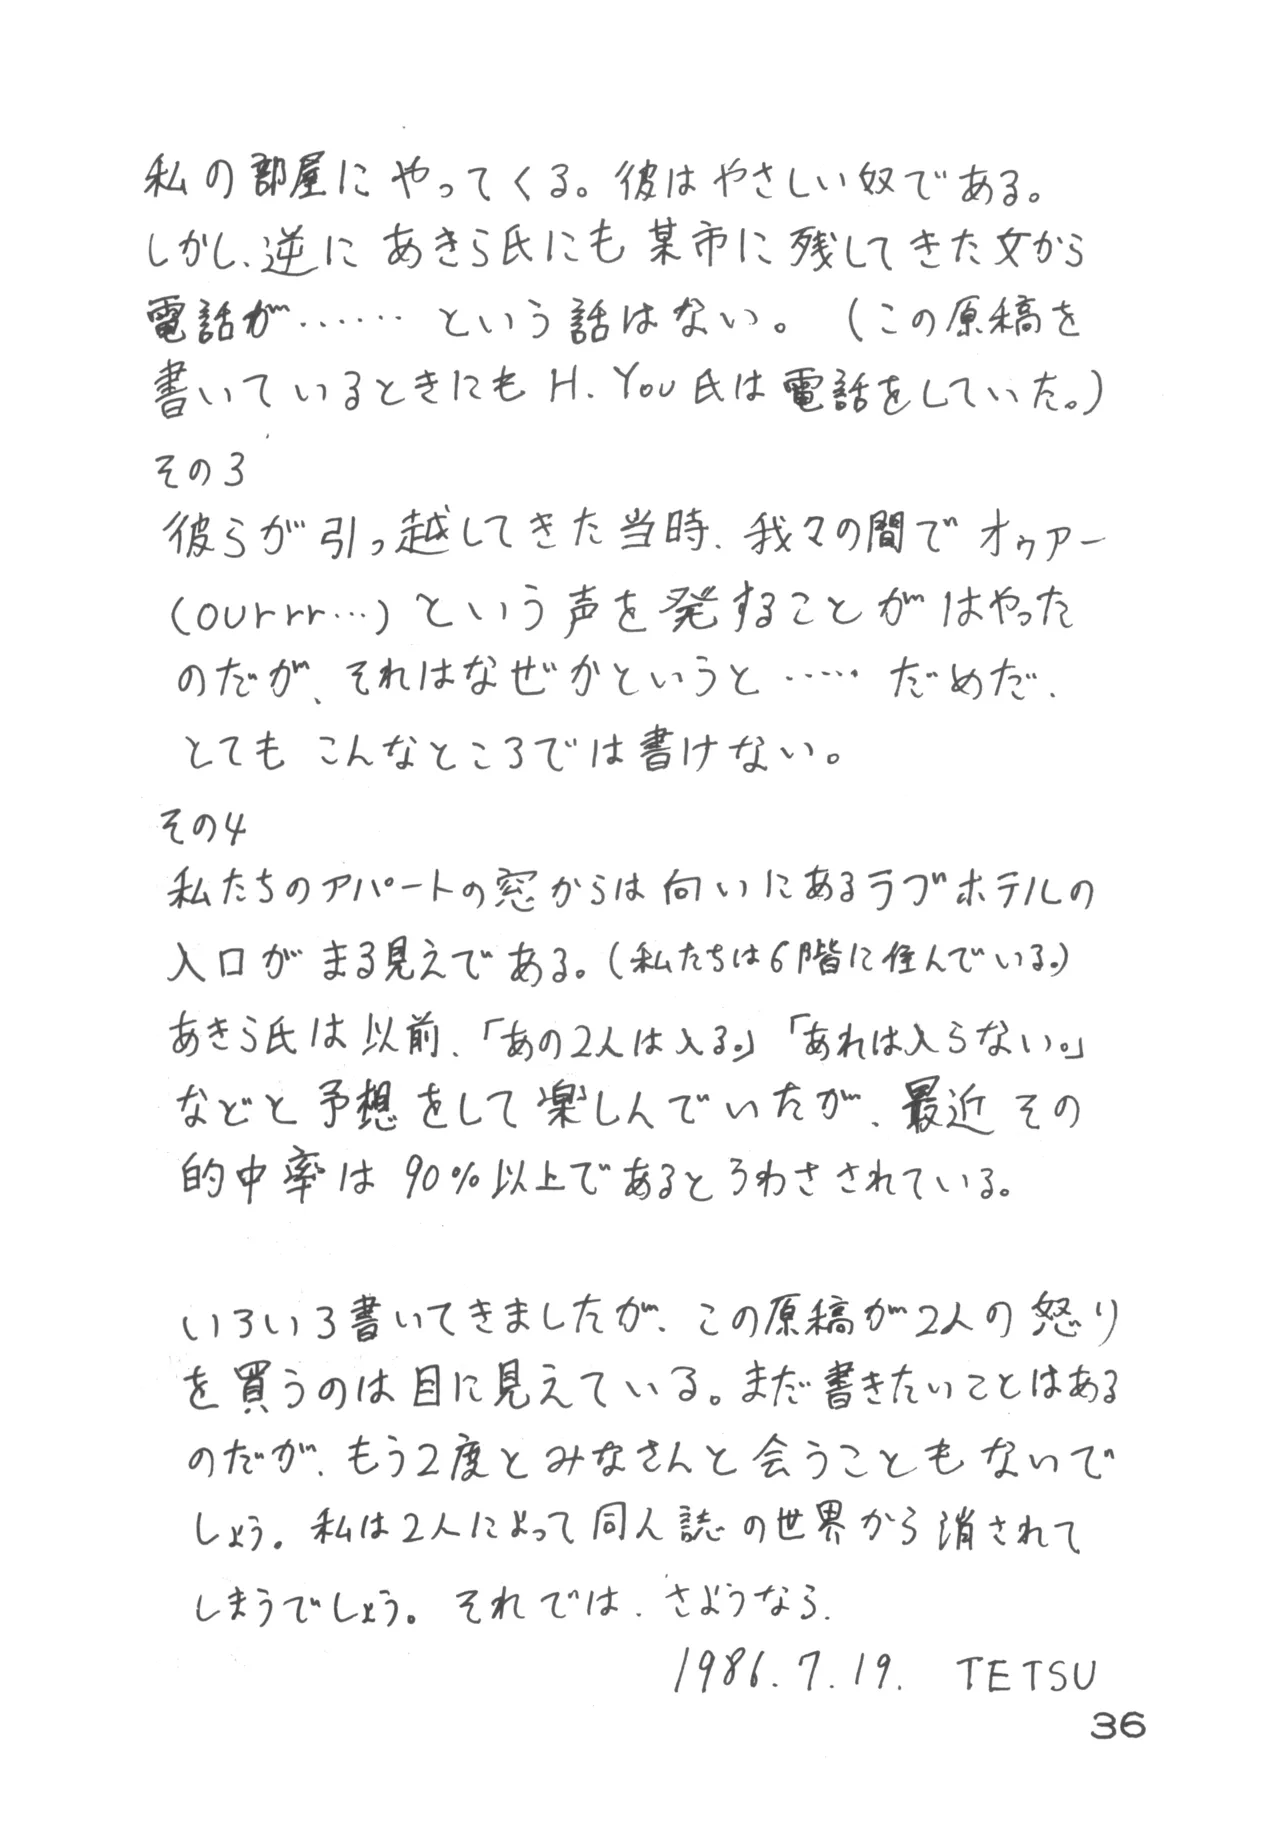 私の部屋にやってくる。彼はやさしい奴である。
しかし、逆にあきら氏にも某市に残してきた女から
電話が……という話はない。（この原稿を
書いているときにも H. You 氏は電話をしていた。）
その3
彼らが引っ越してきた当時、我々の間でオゥアー
(ourrr…)という声を発することがはやった
のだが、それはなぜかというと……だめだ、
とてもこんなところでは書けない。
その4
私たちのアパートの窓からは向いにあるラブホテルの
入口がまる見えである。（私たちは6階に住んでいる。）
あきら氏は以前、「あの2人は入る。」「あれは入らない。」
などと予想をして楽しんでいたが、最近その
的中率は90%以上であるとうわさされている。
いろいろ書いてきましたが、この原稿が2人の怒り
を買うのは目に見えている。まだ書きたいことはある
のだが、もう2度とみなさんと会うこともないで
しょう。私は2人によって同人誌の世界から消されて
しまうでしょう。それでは、さようなら、
1986.7.19. TETSU
36